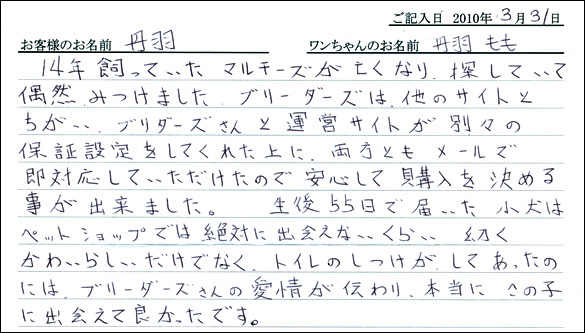 ご記入日 2010年 3月31日
お客様のお名前 丹羽 ワンちゃんのお名前 丹羽 もも
14年 飼っていた マルチーズが 亡くなり、探していて
偶然 みつけました。ブリーダーズは、他のサイトと
ちがい、ブリダーズさん と 運営サイトが 別々の
保証設定をしてくれた上に、両方とも メールで
即対応していただけたので 安心して 購入を 決める
事が 出来ました。 生後 55日で 届いた 小犬は
ペットショップでは 絶対に 出会えないくらい 幼く
かわいらしいだけでなく、トイレのしつけが してあったの
には、ブリーダーズさんの 愛情が 伝わり、本当に この子
に 出会えて 良かったです。